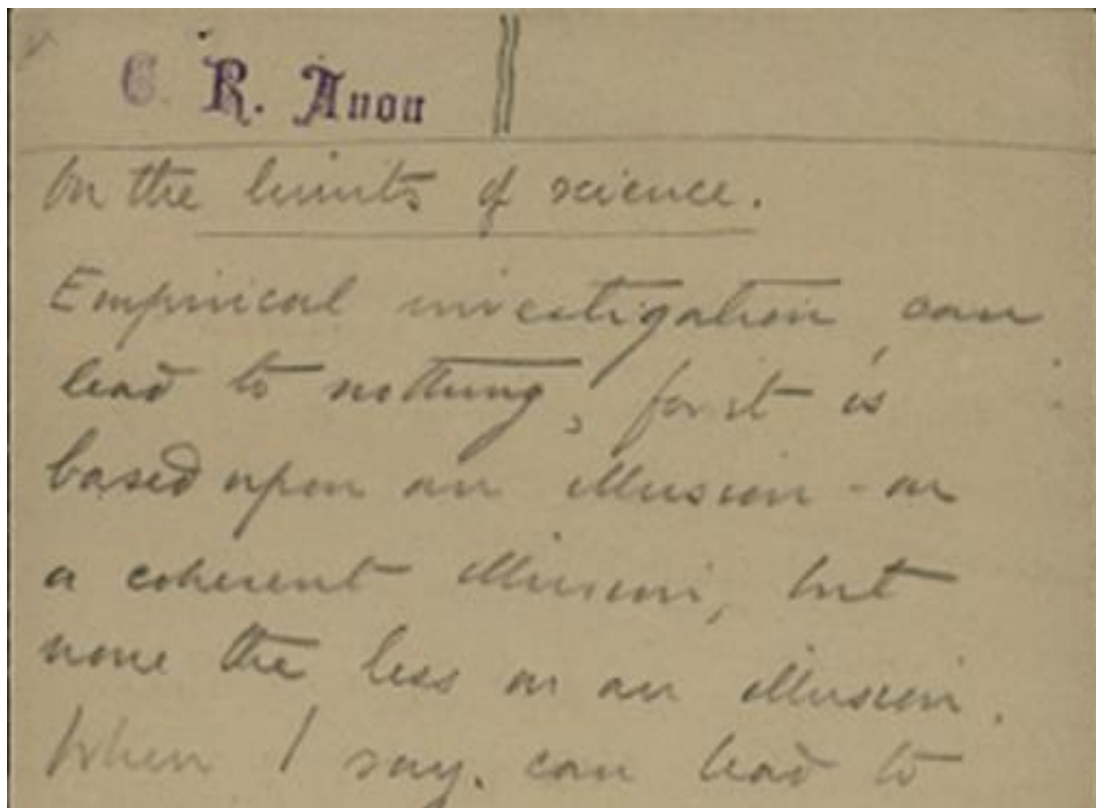 C. R. Anon
On the limits of science.
Empirical investigation can
lead to nothing, for it is
based upon an illusion - on
a coherent illusion, but
none the less on an illusion.
When I say. can lead to